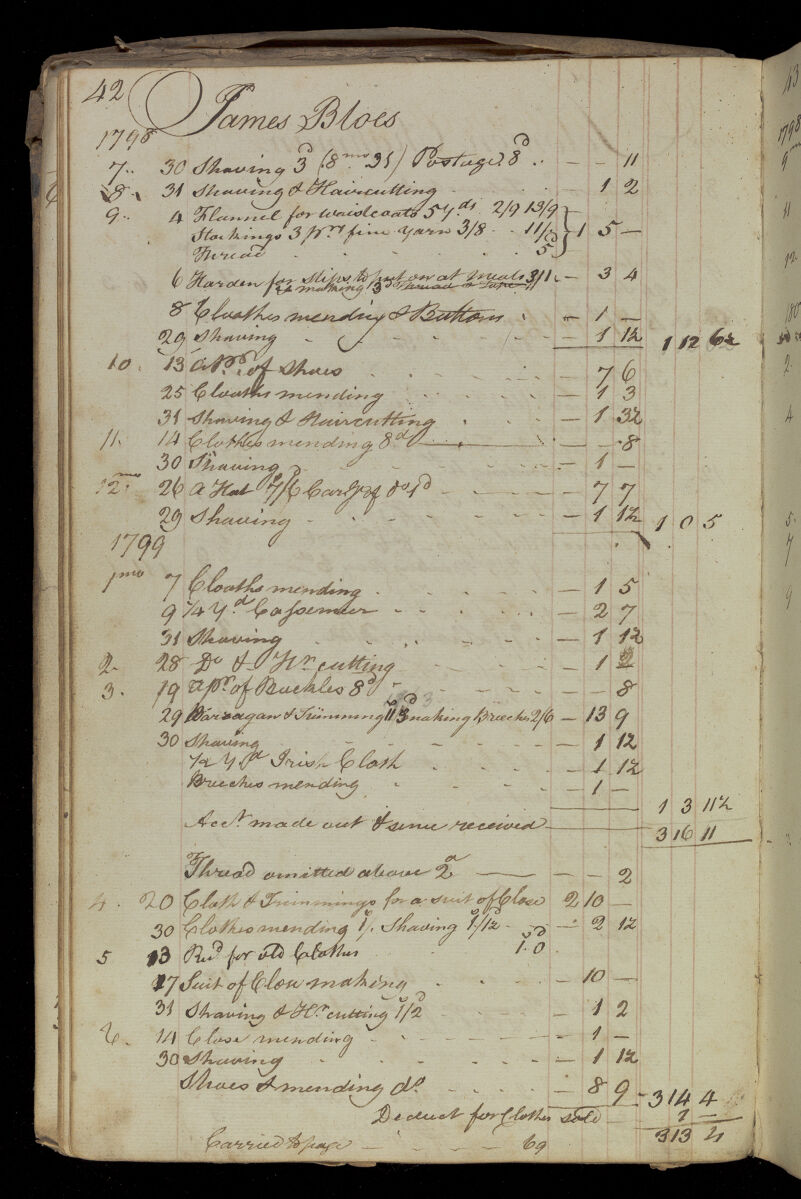 42 James Bloes
1798
7 .. 30 Shaving 3d (8mo 31) Postage 8d .. — — 11
8 .. 31 Shaving & Haircutting — 1 2
9 .. 4 Flannel for waistcoats 5 yds 2/9 13/9
Stockings 3 prs fine yarn 3/8 .. 11/ } 1 5 —
Thread 5d
6 Harden for slips to put on at meals 3/1 — 3 4
making 13d Thread & Tape
8 Cloathes mending & Buttons — 1 —
29 Shaving — 1 1½ 1 12 6½
10 .. 13 a Pr. of Shoes — 7 6
25 Cloaths mending — 1 3
31 Shaving & Haircutting — 1 3½
11. 14 Clothes mending 8d — — 8
30 Shaving — 1 —
12mo 26 a Hat 7/6 Carge of do 1d — 7 7
29 Shaving — 1 1½ 1 0 5
1799
1mo 7 Cloaths mending — 1 5
9 ¼ Yd Cassemeer — 2 7
31 Shaving — 1 1½
2. 28 Do & Hr cutting — 1 2
3. 19 a pr of Buckles 8d — — 8
29 Barragan & Trimming 11/3 making Breeches 2/6 — 13 9
30 Shaving — 1 1½
½ Yd Irish Cloth — 1 1½
Breeches mending — 1 —
1 3 11½
Acct made out & same received 3 16 11
Thread omitted above 2d — — 2
4. 20 Cloth & Trimmings for a suit of Close 2 10 —
30 Clothes mending 1/. Shaving 1/1½ — 2 1½
5 13 Recd for old Clothes 1. 0
17 Suit of Close making — 10 —
31 Shaving & Hr cutting 1/2 — 1 2
6. 14 Close mending — 1 —
30 Shaving — 1 1½
Shoes & mending do — 8 9 3 14 4
Deduct for Clothes sold 1 —
3 13 4
Carried to page 69
43
1798